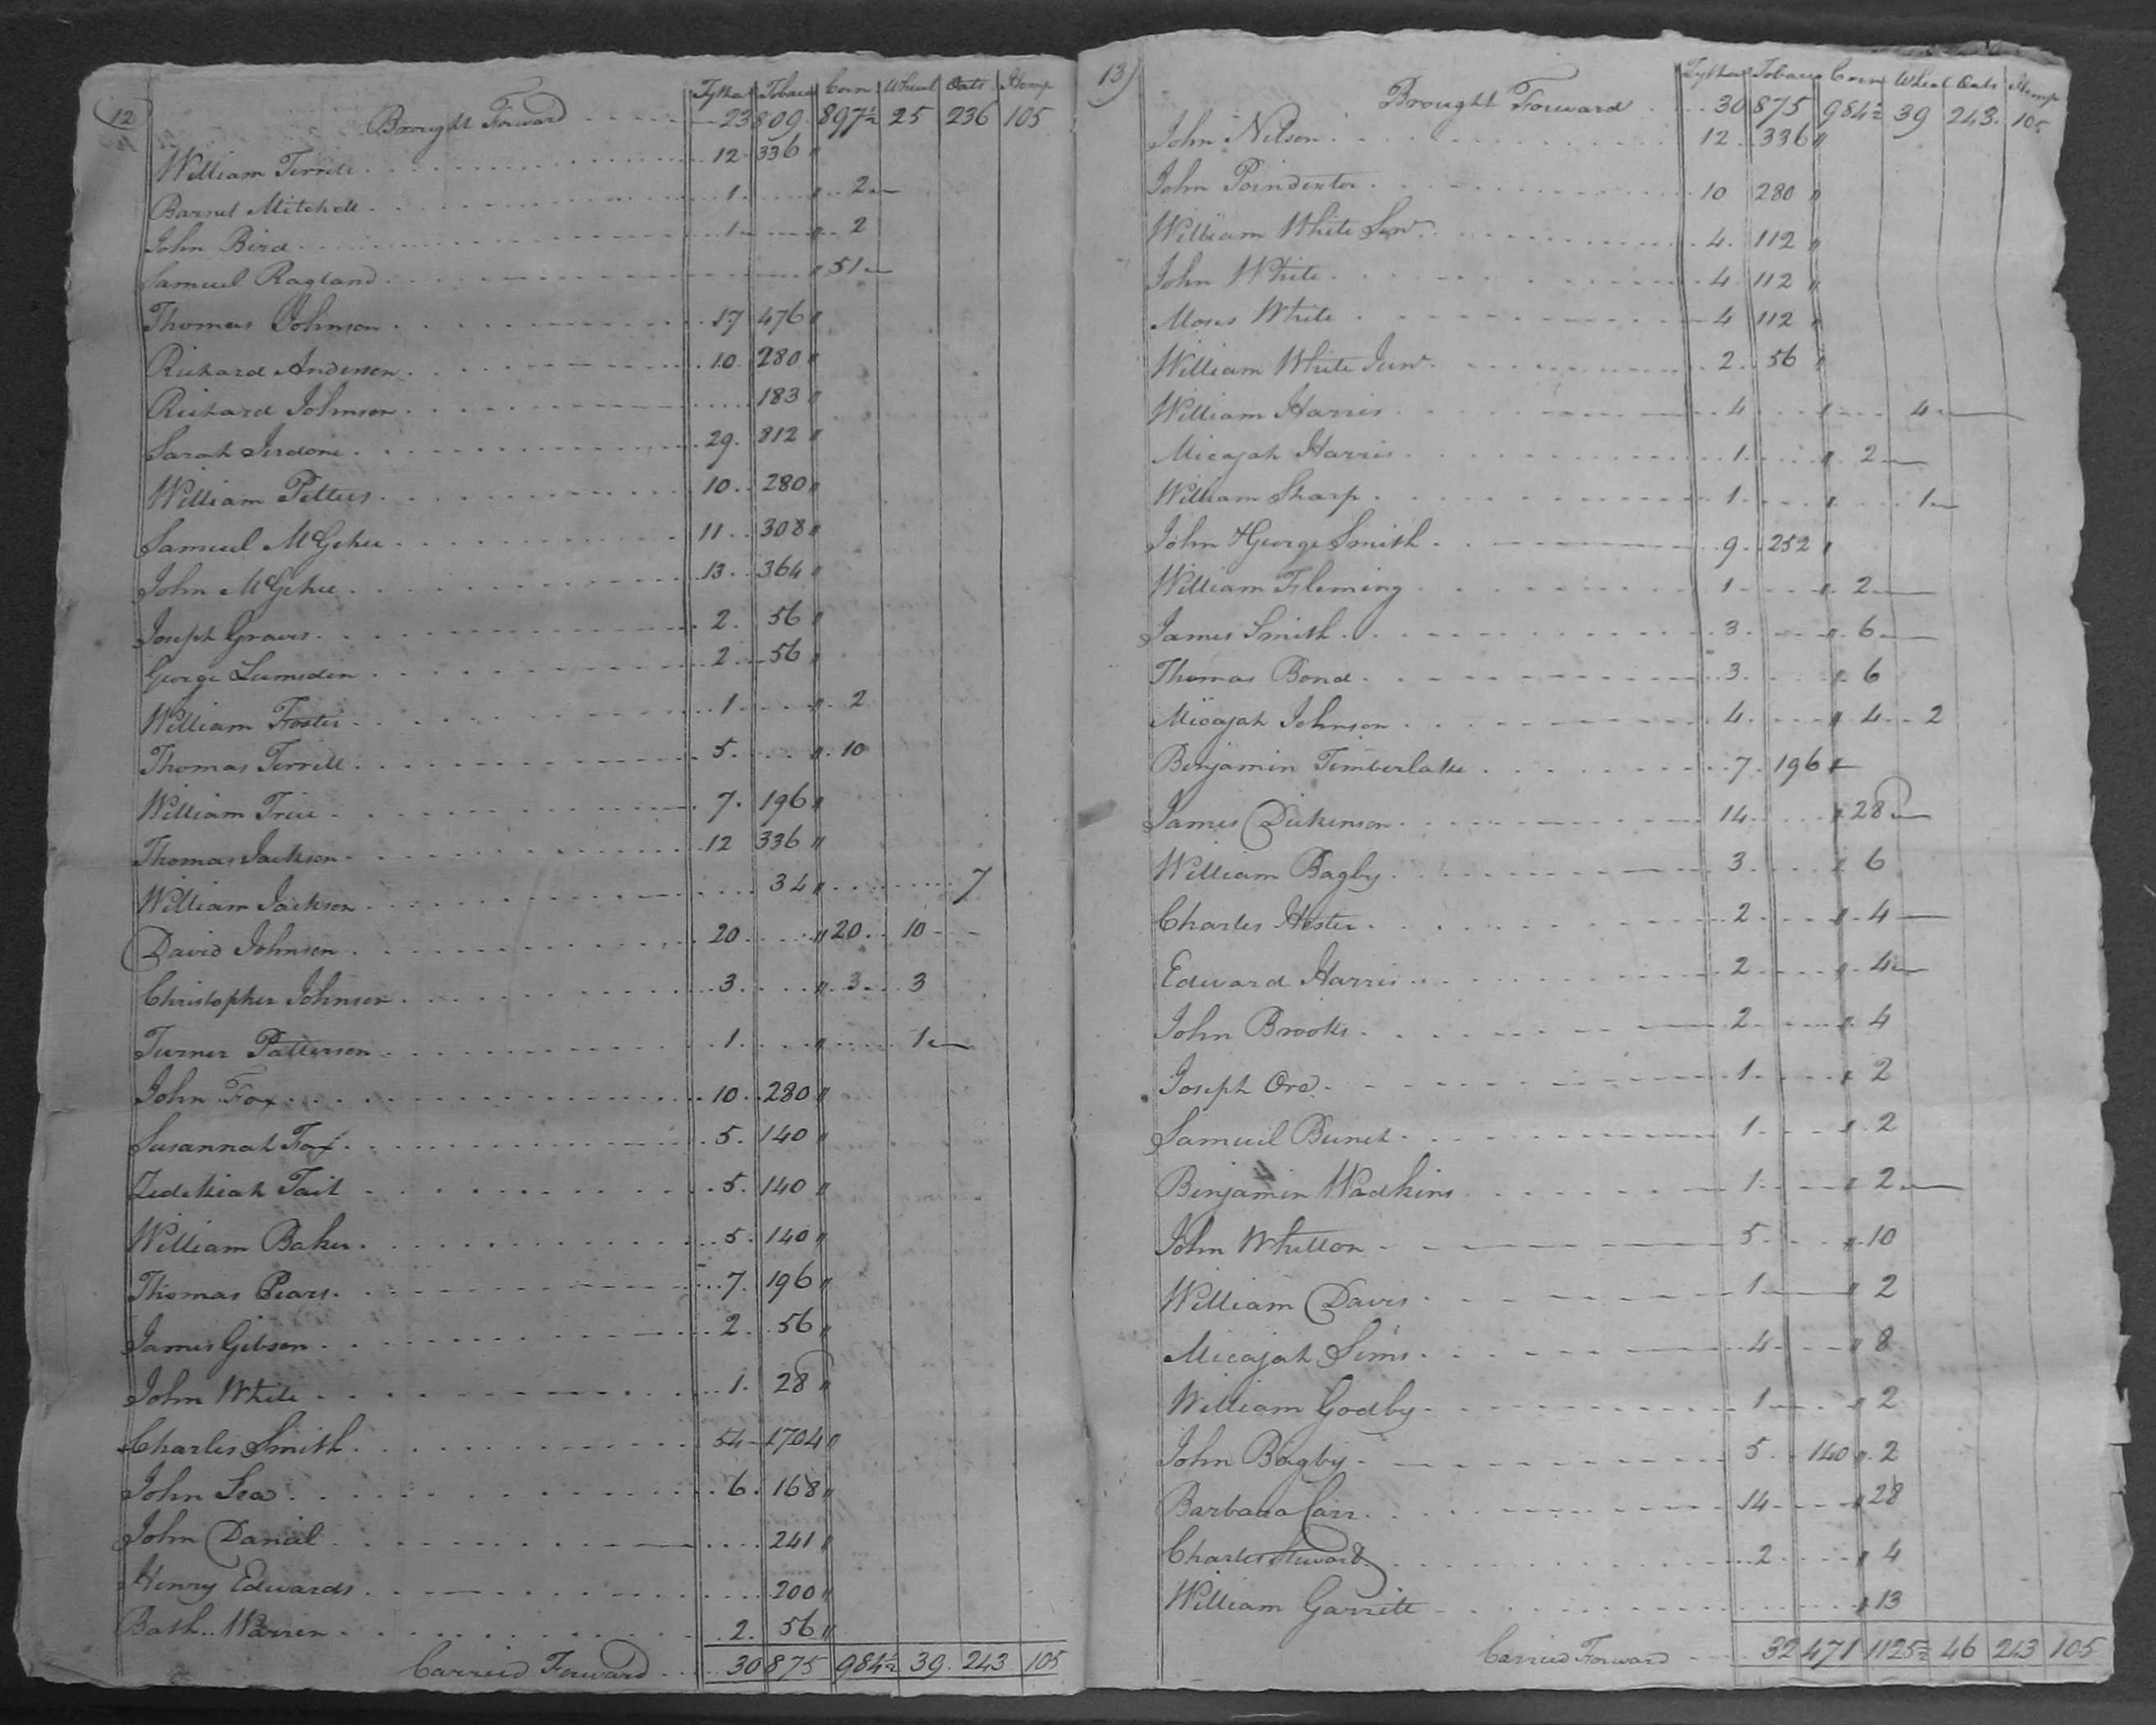 12
Tytha Tobaco Corn Wheat Oats Hemp
Brought Forward 23809 897½ 25 236 105
William Terrell 12 336 "
Barnet Mitchell 1 " 2
John Bird 1 " 2
Samuel Ragland " 51
Thomas Johnson 17 476 "
Richard Anderson 10 280 "
Richard Johnson 183 "
Sarah Jerdone 29 812 "
William Pettus 10 280 "
Samuel McGehee 11 308 "
John McGehee 13 364 "
Joseph Graves 2 56 "
George Lumsden 2 56 "
William Foster 1 " 2
Thomas Terrell 5 " 10
William Trice 7 196 "
Thomas Jackson 12 336 "
William Jackson 34 " 7
David Johnson 20 " 20 10
Christopher Johnson 3 " 3 3
Turner Patterson 1 " 1
John Fox 10 280 "
Susannah Fox 5 140 "
Zedekiah Tait 5 140 "
William Baker 5 140 "
Thomas Pears 7 196 "
James Gibson 2 56 "
John White 1 28 "
Charles Smith 54 1704 "
John Lea 6 168 "
John Danial 241 "
Henry Edwards 200 "
Bath.. Warren 2 56 "
Carried Forward 30875 984½ 39 243 105
13)
Tytha Tobaco Corn Wheat Oats Hemp
Brought Forward 30875 984½ 39 243 105
John Nelson 12 336 "
John Poindexter 10 280 "
William White Senr. 4 112 "
John White 4 112 "
Moses White 4 112 "
William White Junr. 2 56 "
William Harris 4 " 4
Micajah Harris 1 " 2
William Sharp 1 " 1
John George Smith 9 252 "
William Fleming 1 " 2
James Smith 3 " 6
Thomas Bond 3 " 6
Micajah Johnson 4 " 4 2
Benjamin Timberlake 7 196 "
James Dickenson 14 " 28
William Bagby 3 " 6
Charles Hester 2 " 4
Edward Harris 2 " 4
John Brooks 2 " 4
Joseph Ord 1 " 2
Samuel Bunch 1 " 2
Benjamin Wadkins 1 " 2
John Whitton 5 " 10
William Davis 1 " 2
Micajah Sims 4 " 8
William Godby 1 " 2
John Bagby 5 140 " 2
Barbara Carr 14 " 28
Charles Steward 2 " 4
William Garrett " 13
Carried Forward 32471 1125½ 46 243 105